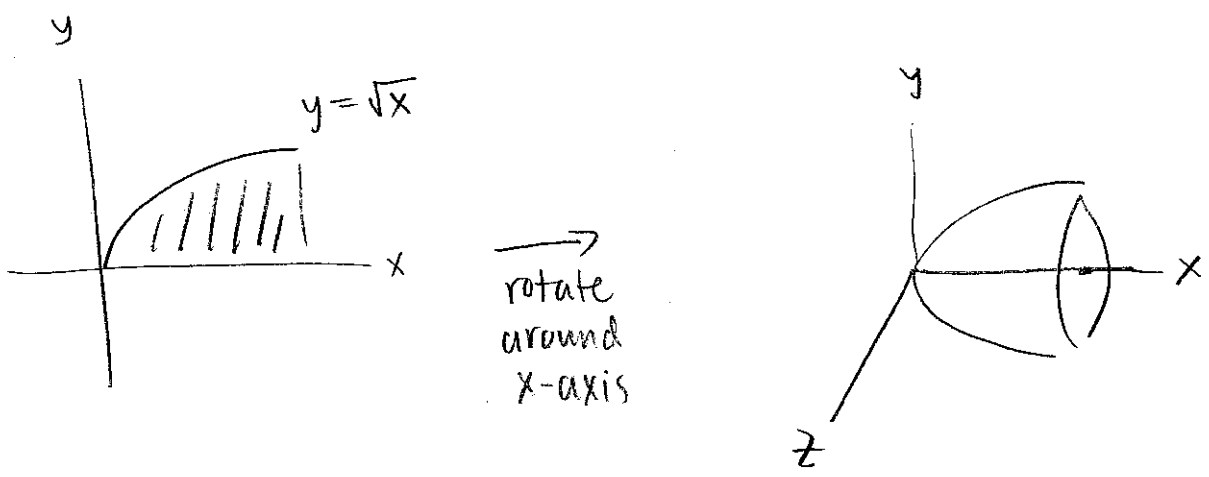 y
y = √x
x
rotate
around
x-axis
y
x
z